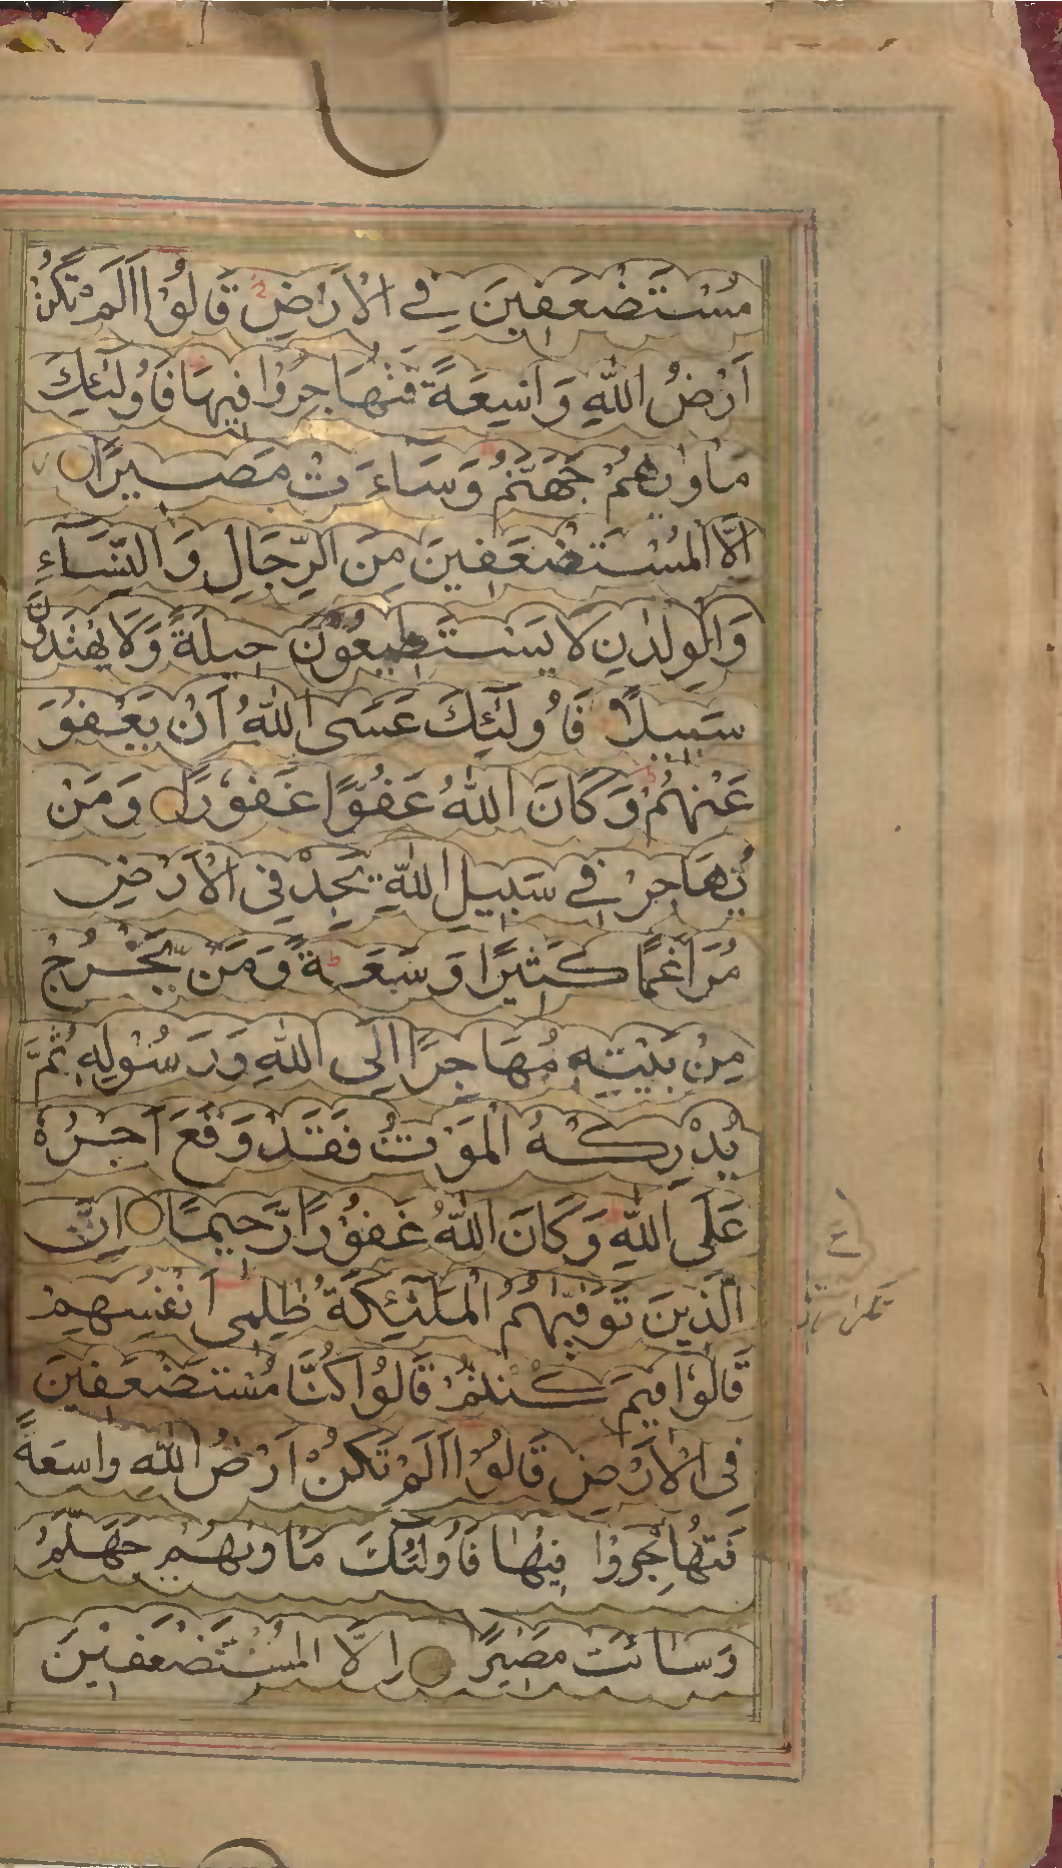 مُسْتَضْعَفِينَ فِي الْاَرْضِ قَالُوْا اَلَمْ تَكُنْ
اَرْضُ اللّٰهِ وَاسِعَةً فَتُهَاجِرُوْا فِيهَا فَاُولٰئِكَ
مَاْوٰىهُمْ جَهَنَّمُ وَسَاءَتْ مَصِيرًا
اِلَّا الْمُسْتَضْعَفِينَ مِنَ الرِّجَالِ وَالنِّسَآءِ
وَالْوِلْدٰنِ لَا يَسْتَطِيعُوْنَ حِيلَةً وَلَا يَهْتَدُوْنَ
سَبِيلًا فَاُولٰٓئِكَ عَسَى اللّٰهُ اَنْ يَعْفُوَ
عَنْهُمْ وَكَانَ اللّٰهُ عَفُوًّا غَفُوْرًا وَمَنْ
يُهَاجِرْ فِي سَبِيلِ اللّٰهِ يَجِدْ فِي الْاَرْضِ
مُرَاغَمًا كَثِيْرًا وَسَعَةً وَمَنْ يَّخْرُجْ
مِنْ بَيْتِهٖ مُهَاجِرًا اِلَى اللّٰهِ وَرَسُوْلِهٖ ثُمَّ
يُدْرِكْهُ الْمَوْتُ فَقَدْ وَقَعَ اَجْرُهٗ
عَلَى اللّٰهِ وَكَانَ اللّٰهُ غَفُوْرًا رَّحِيمًا اِنَّ
الَّذِينَ تَوَفّٰىهُمُ الْمَلٰٓئِكَةُ ظٰلِمِى اَنْفُسِهِمْ
قَالُوْا فِيمَ كُنْتُمْ قَالُوْا كُنَّا مُسْتَضْعَفِينَ
فِى الْاَرْضِ قَالُوْا اَلَمْ تَكُنْ اَرْضُ اللّٰهِ وَاسِعَةً
فَتُهَاجِرُوْا فِيْهَا فَاُولٰئِكَ مَاْوٰىهُمْ جَهَنَّمُ
وَسَائَتْ مَصِيْرًا اِلَّا الْمُسْتَضْعَفِيْنَ